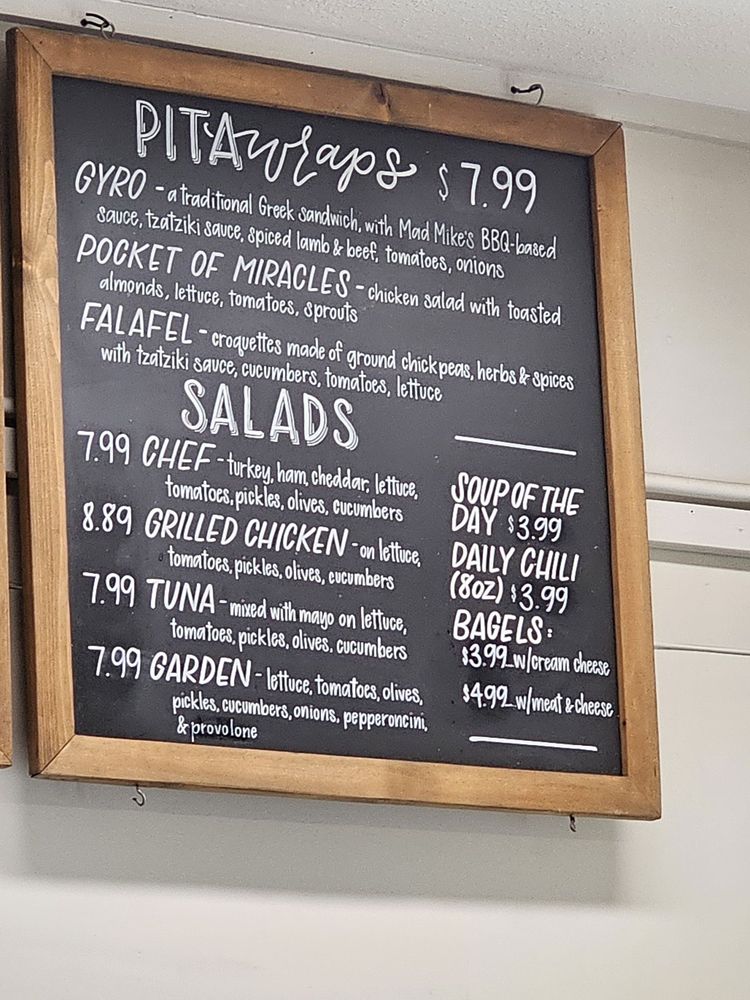 PITA wraps $7.99
GYRO - a traditional Greek sandwich, with Mad Mike's BBQ-based
sauce, tzatziki sauce, spiced lamb & beef, tomatoes, onions
POCKET OF MIRACLES - chicken salad with toasted
almonds, lettuce, tomatoes, sprouts
FALAFEL - croquettes made of ground chickpeas, herbs & spices
with tzatziki sauce, cucumbers, tomatoes, lettuce
SALADS
7.99 CHEF - turkey, ham, cheddar, lettuce,
tomatoes, pickles, olives, cucumbers
8.89 GRILLED CHICKEN - on lettuce,
tomatoes, pickles, olives, cucumbers
7.99 TUNA - mixed with mayo on lettuce,
tomatoes, pickles, olives, cucumbers
7.99 GARDEN - lettuce, tomatoes, olives,
pickles, cucumbers, onions, pepperoncini,
& provolone
SOUP OF THE
DAY $3.99
DAILY CHILI
(8oz) $3.99
BAGELS:
$3.99 w/cream cheese
$4.99 w/meat & cheese